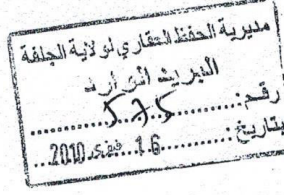 مديرية الحفظ العقاري لولاية الجلفة
البريد الوارد
رقم: 575
بتاريخ: 16 فيفري 2010